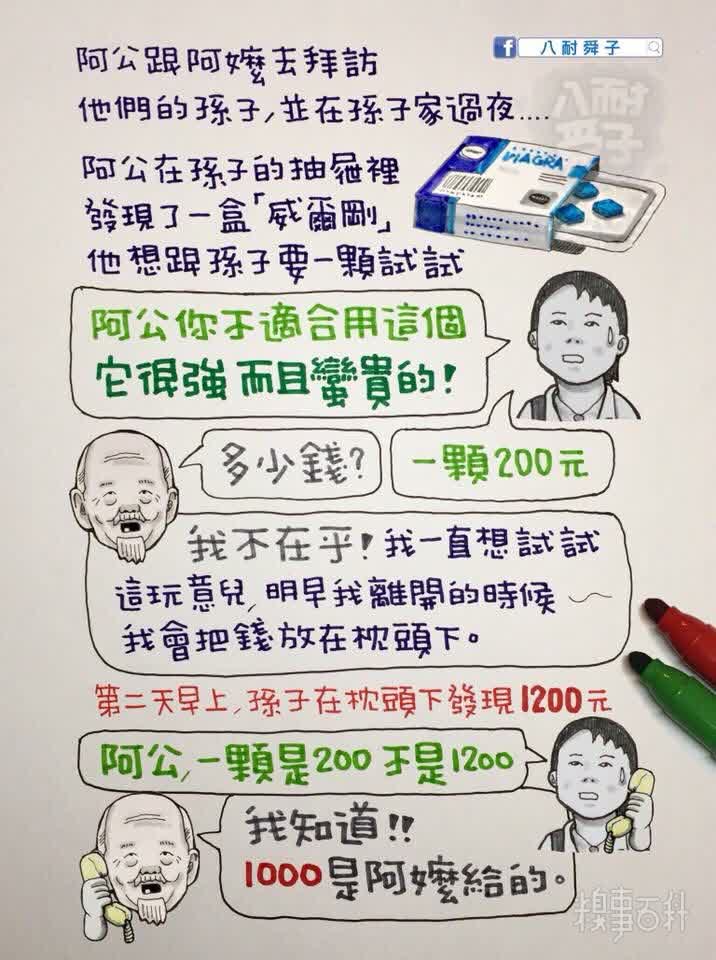 八耐舜子
八耐
舜子
阿公跟阿嬤去拜訪
他們的孫子,並在孫子家過夜....
阿公在孫子的抽屜裡
發現了一盒「威爾剛」
他想跟孫子要一顆試試
VIAGRA
阿公你不適合用這個
它很強而且蠻貴的!
多少錢?
一顆200元
我不在乎!我一直想試試
這玩意兒,明早我離開的時候~
我會把錢放在枕頭下。
第二天早上,孫子在枕頭下發現1200元
阿公,一顆是200不是1200
我知道!!
1000是阿嬤給的。
糗事百科